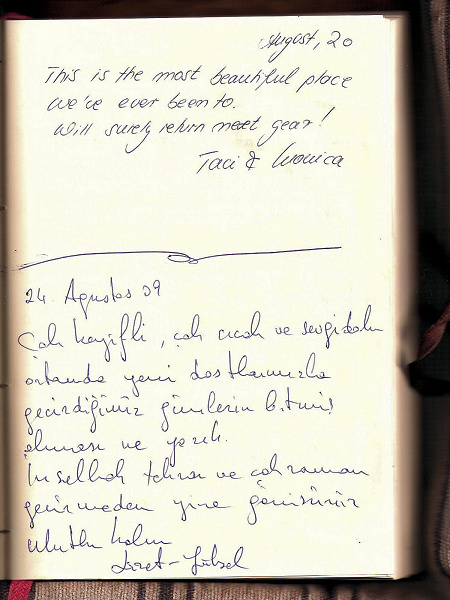 August, 20
This is the most beautiful place
we've ever been to.
Will surely return next year!
Taci &
24 Agustos 09
Çok keyifli, çok sıcak ve sevgi dolu
ortamda yeni dostlarımızla
geçirdiğimiz günlerin bitmiş
olması ne yazık.
İnşallah tekrar ve çok zaman
geçirmeden yine görüşürüz
Mutlu kalın